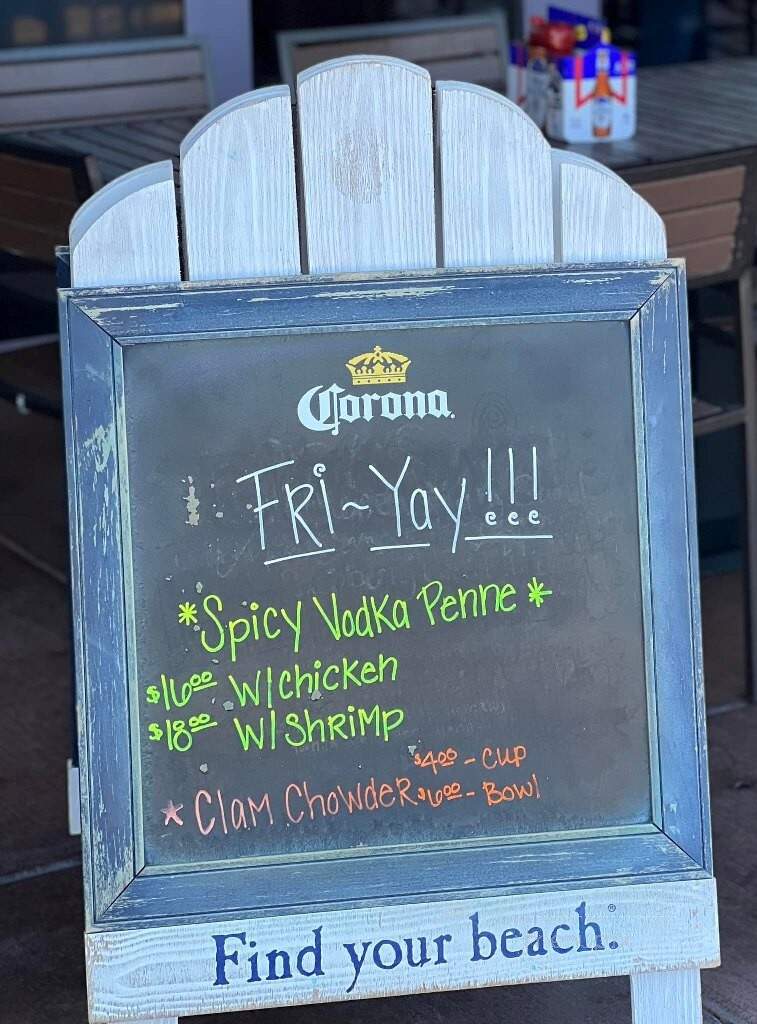 Corona
FRi~Yay!!!
*Spicy Vodka Penne*
$16.00 W/Chicken
$18.00 W/ShRiMp
$4.00 - Cup
★ Clam ChowdeR $6.00 - Bowl
Find your beach.®